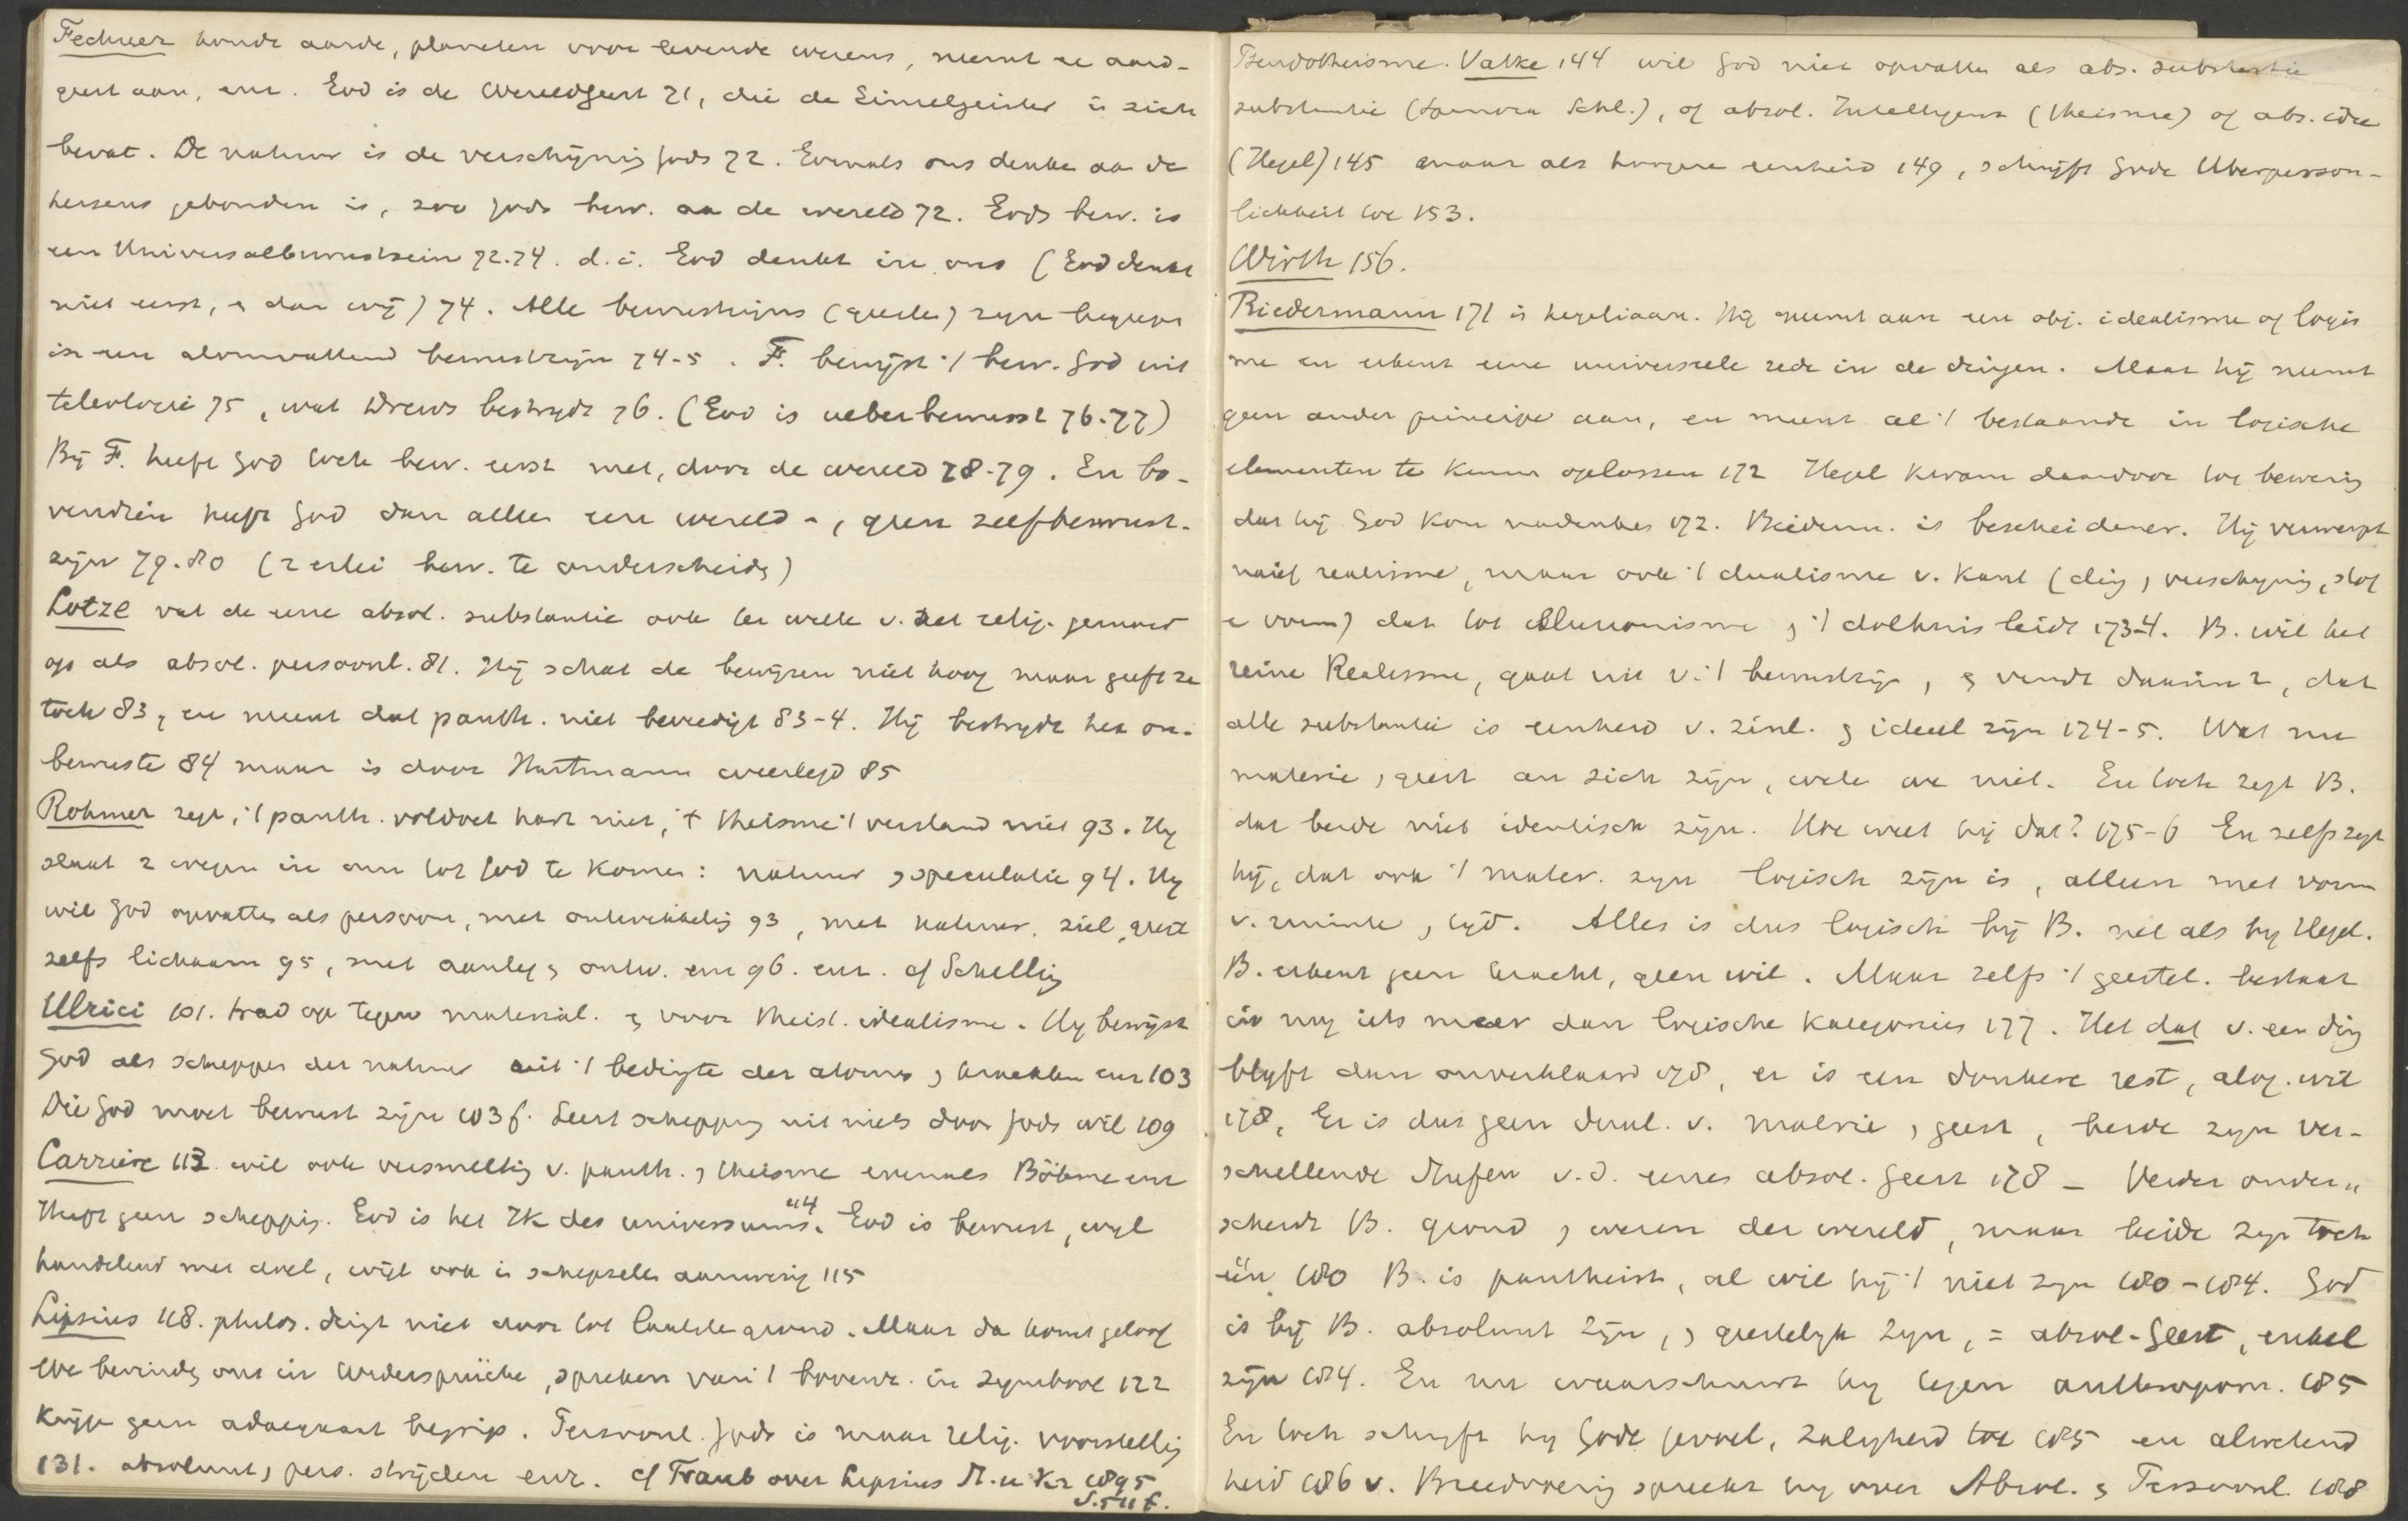 Fechner houdt aarde, planeten voor levende wezens, neemt ze aard-
geest aan, enz. God is de Wereldgeest 71, die de Einzelgeister in zich
bevat. De natuur is de verschijning Gods 72. Evenals ons denken aan de
hersens gebonden is, zoo Gods bew. aan de wereld 72. Gods bew. is
een Universalbewusstsein 72.74. d.i. God denkt in ons (God denkt
niet eerst, en dan wij) 74. Alle bewustzijns (geesten) zijn begrepen
in een alomvattend bewustzijn 74-5. F. bewijst 't bew. God uit
teleologie 75, wat Drews bestrijdt 76. (God is ueberbewusst 76-77)
Bij F. heeft God toch bew. eerst met, door de wereld 78-79. En bo-
vendien heeft God dan alleen een wereld -, geen zelfbewust-
zijn 79.80 (2 erlei bew. te onderscheiden)
Lotze vat de eene absol. substantie ook ter wille v. het relig. gemoed
op als absol. persoonl. 81. Hij schat de bewijzen niet hoog maar geeft ze
toch 83, en meent dat panth. niet bevredigt 83-4. Hij bestrijdt het on-
bewuste 84 maar is door Hartmann weerlegd 85
Rohmer zegt, 't panth. voldoet hart niet, 't theisme 't verstand niet 93. Hij
slaat 2 wegen in om tot God te komen: natuur, speculatie 94. Hij
wil God opvatten als persoon, met ontwikkeling 93, met natuur, ziel, geest
zelfs lichaam 95, met aanleg en ontw. enz 96. enz. cf Schelling
Ulrici 101. trad op tegen material. en voor theist. idealisme. Hij bewijst
God als schepper der natuur uit 't bedingte der atomen, krachten enz 103
Die God moet bewust zijn 103 f. Leert schepping uit niets door Gods wil 109
Carriere 113 wil ook versmelting v. panth., theisme evenals Böhme enz
Heeft geen schepping. God is het Ik des universums 114. God is bewust, wijl
handelend met doel, wijl ook in schepselen aanwezig 115
Lipsius 118. philos. dringt niet door tot laatste grond. Maar da komt geloof
We bevinden ons in Widersprüche, spreken van 't bovenz. in symbool 122
Krijgt geen adaequaat begrip. Persoonl. Gods is maar relig. voorstelling
131. absoluut, pers. strijden enz. cf Traub over Lipsius St. u. Kr 1895
S. 511 f.
Pseudotheisme. Vatke 144 wil God niet opvatten als abs. substantie
substantie (Spinoza Schl.), of absol. Intelligenz (theisme) of abs. idee
(Hegel) 145 maar als hoogere eenheid 149, schrijft Gode Uberperson-
lichkeit toe 153.
Wirth 156.
Biedermann 171 is hegeliaan. Hij neemt aan een obj. idealisme of logis
me en erkent eene universeele rede in de dingen. Maar hij neemt
geen ander principe aan, en meent al 't bestaande in logische
elementen te kunnen oplossen 172 Hegel kwam daardoor tot bewering
dat hij God kon nadenken 172. Biederm. is bescheidener. Hij verwerpt
naief realisme, maar ook 't dualisme v. Kant (ding, verschijning, stof
en vorm) dat tot Illusionisme en 't dolhuis leidt 173-4. B. wil het
reine Realisme, gaat uit v. 't bewustzijn, en vindt daarin 2, dat
alle substantie is eenheid v. zinl. en ideëel zijn 174-5. Wat nu
materie, geest an sich zijn, weten we niet. En toch zegt B.
dat beide niet identisch zijn. Hoe weet hij dat? 175-6 En zelfs zegt
hij, dat ook 't mater. zijn logisch zijn is, alleen met vorm
v. ruimte, tijd. Alles is dus logisch bij B. net als bij Hegel.
B. erkent geen kracht, geen wil. Maar zelfs 't geestel. bestaat
in nog iets meer dan logische kategorieën 177. Het dat v. een ding
blijft dan onverklaard 178, er is een donkere rest, alog. wil
178, Er is dus geen dual. v. materie, geest, beide zijn ver-
schillende Stufen v.d. eenen absol. geest 178 - Verder onder-
scheidt B. grond, wezen der wereld, maar beide zijn toch
één 180 B. is pantheist, al wil hij 't niet zijn 180-184. God
is bij B. absoluut zijn, en geestelijk zijn, = absol-Geest, enkel
zijn 184. En nu waarschuwt hij tegen anthropom. 185
En toch schrijft hij Gode gevoel, zaligheid toe 185 en alwetend
heid 186 v. Breedvoerig spreekt hij over Absol. en Persoonl. 188